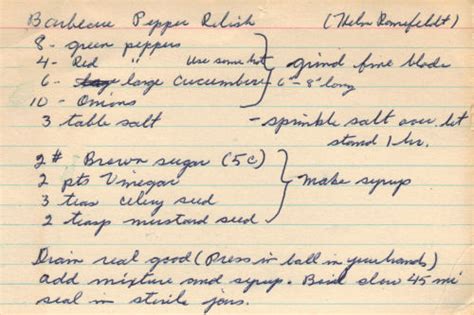 Barbecue Pepper Relish (Thelma Romefeldt)
8 - green peppers
4 - Red " Use some hot grind fine blade
6 - large cucumbers 6" - 8" long
10 - Onions
3 table salt - sprinkle salt over. let
stand 1 hr.
2# Brown sugar (5c)
2 pts Vinegar make syrup
3 teas celery seed
2 teasp mustard seed
Drain real good (Press in ball in your hands)
add mixture and syrup. Boil slow 45 mi
seal in sterile jars.